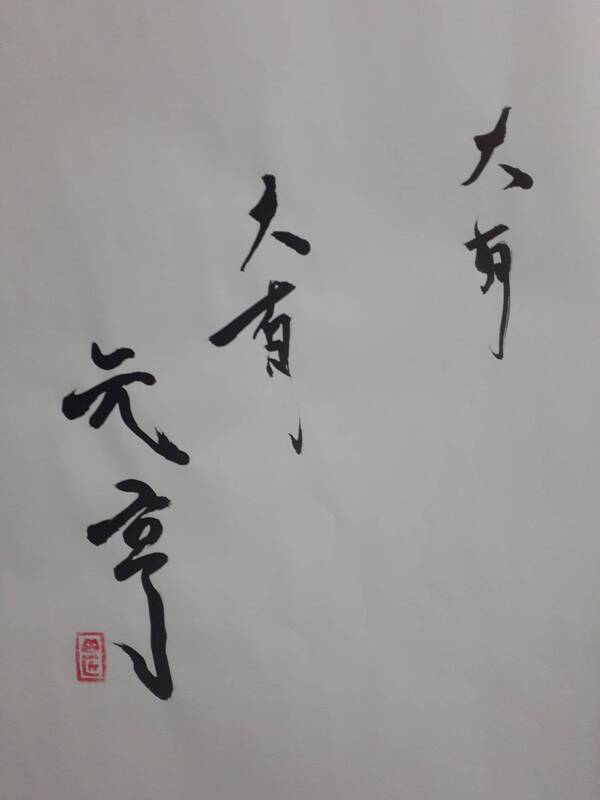 大有
大有
元亨